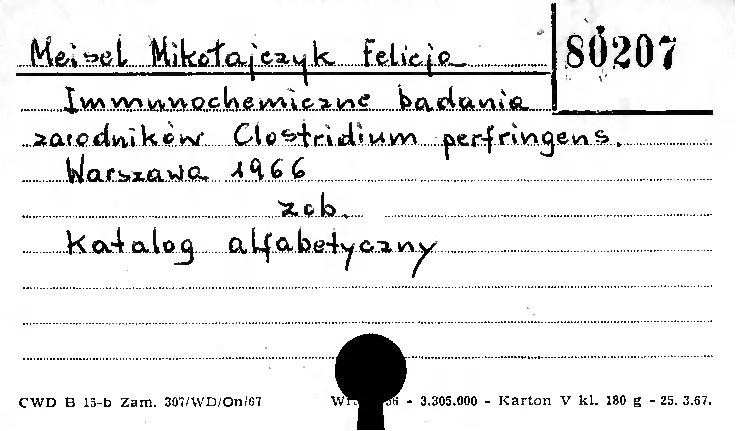 Meisel Mikołajczyk Felicja
80207
Immunochemiczne badania
zarodników Clostridium perfringens.
Warszawa 1966
zob.
Katalog alfabetyczny
CWD B 15-b Zam. 307/WD/On/67
- 3.305.000 - Karton V kl. 180 g - 25. 3.67.